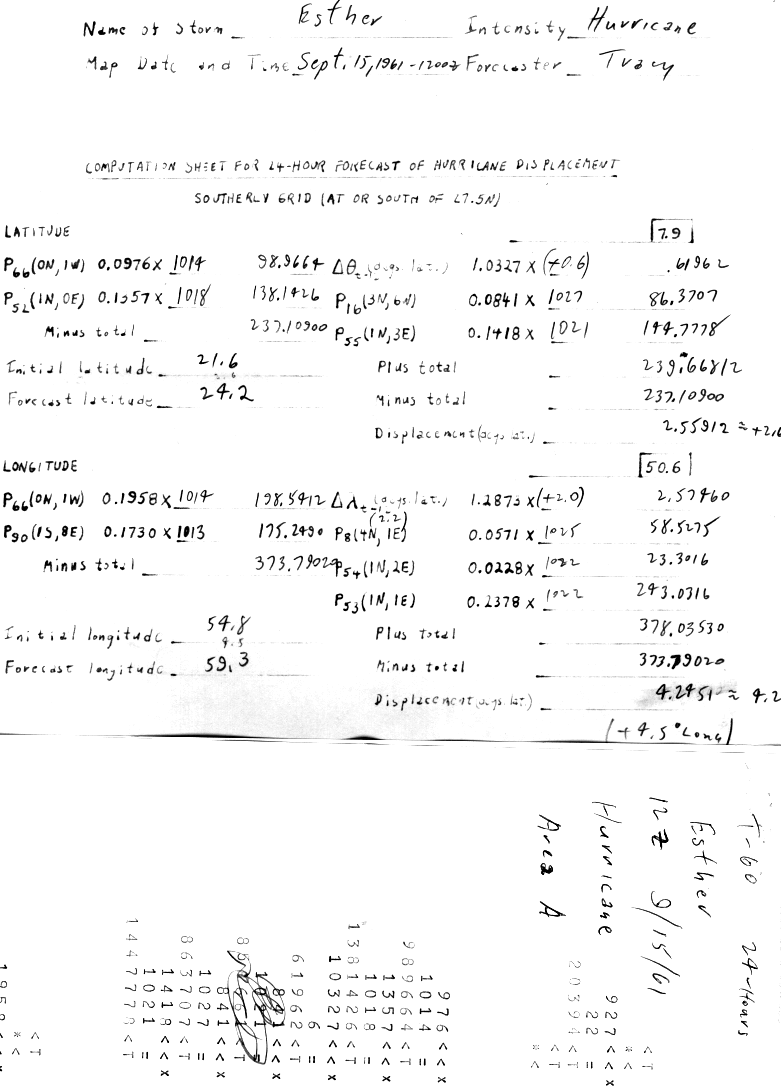 Name of Storm Esther Intensity Hurricane
Map Date and Time Sept. 15, 1961-1200z Forecaster Tracy
COMPUTATION SHEET FOR 24-HOUR FORECAST OF HURRICANE DISPLACEMENT
SOUTHERLY GRID (AT OR SOUTH OF 27.5N)
LATITUDE 7.9
P66(0N, 1W) 0.0976 x 1014 98.9664 Δθt (degs. lat.) 1.0327 x (+0.6) .61962
P52(1N, 0E) 0.1357 x 1018 138.1426 P16(3N, 6W) 0.0841 x 1027 86.3707
Minus total 237.10900 P55(1N, 3E) 0.1418 x 1021 144.7778
Initial latitude 21.6 Plus total 239.66812
Forecast latitude 24.2 Minus total 237.10900
Displacement (degs. lat.) 2.55912 ≈ +2.6
LONGITUDE 50.6
P66(0N, 1W) 0.1958 x 1014 198.5412 Δλt (degs. lat.) 1.2873 x (+2.0) 2.57460
(2.2)
P90(1S, 8E) 0.1730 x 1013 175.2490 P8(4N, 1E) 0.0571 x 1025 58.5275
Minus total 373.79020 P54(1N, 2E) 0.0228 x 1022 23.3016
P53(1N, 1E) 0.2378 x 1022 243.0316
Initial longitude 54.8 Plus total 378.03530
Forecast longitude 59.3 Minus total 373.79020
Displacement (degs. lat.) 4.2451 ≈ 4.2
(+4.5° Long)
T-60 24-Hours
Esther
12Z 9/15/61
Hurricane
Area A
927<<x
22
20394<T
976<<x
1014=
98964<T
1357<<x
1018=
1381426<T
10327<<x
6=
61962<T
841<<x
1027=
863707<T
1418<<x
1021=
1447778<T